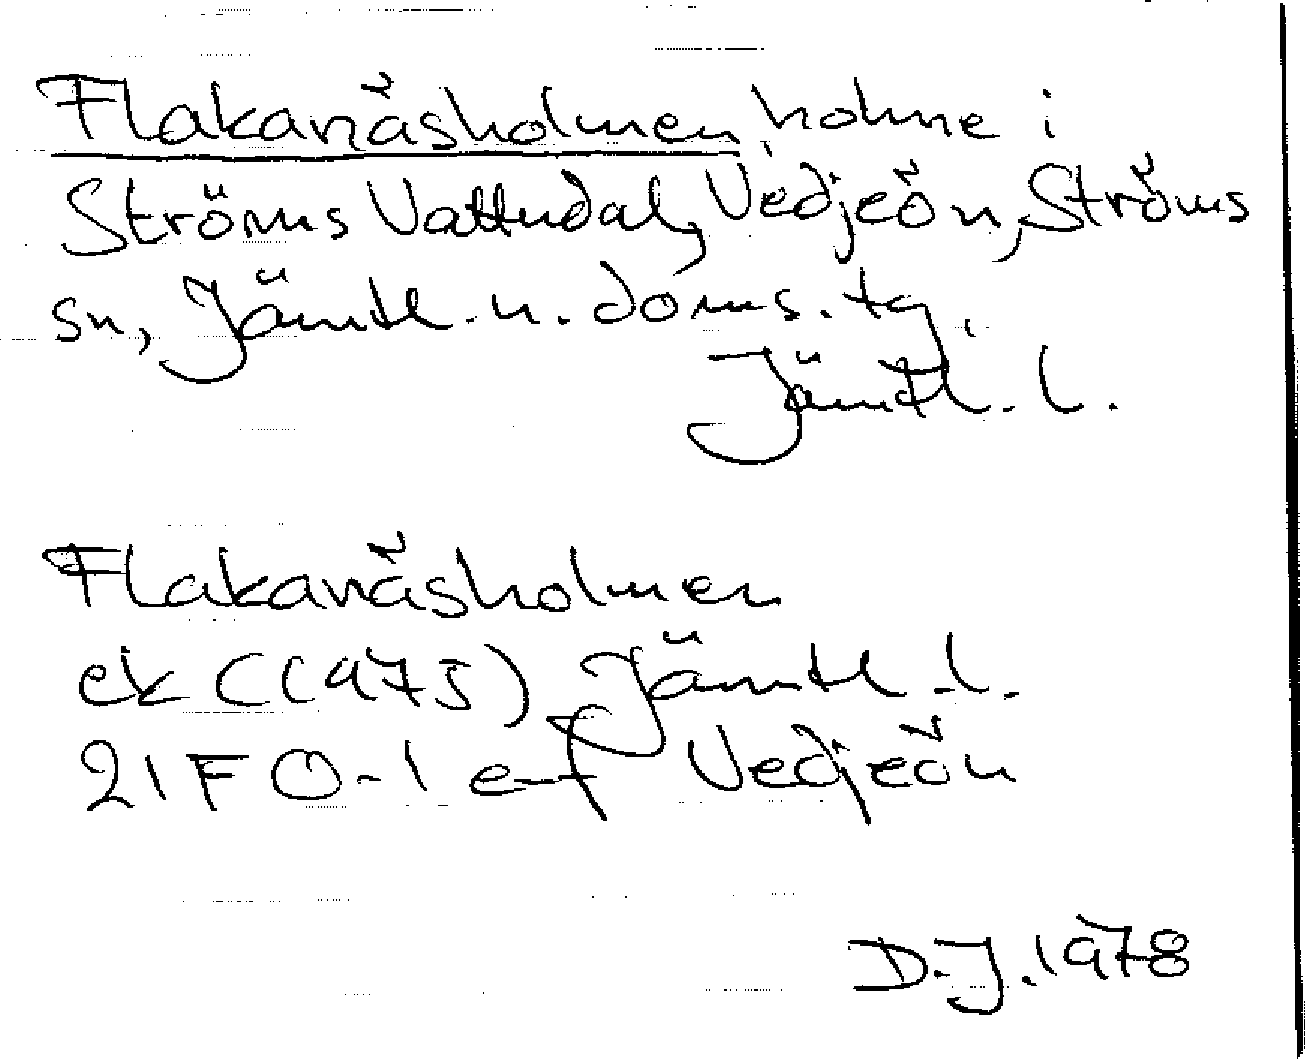 Flakanäsholmen, holme i
Ströms Vattudal, Vedjeön, Ströms
sn, Jämtl. n. doms. tg,
Jämtl. l.
Flakanäsholmen
ek (1975) Jämtl. l.
21F 0-1 e-f Vedjeön
D.J. 1978